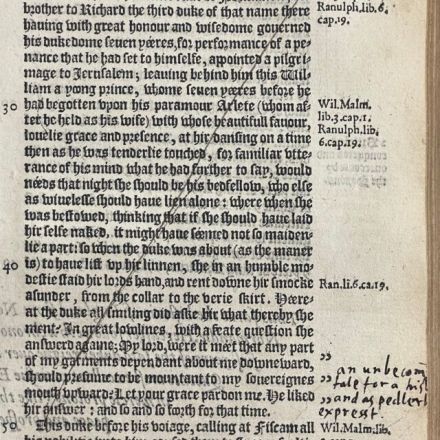 brother to Richard the third duke of that name there
hauing with great honour and wisedome gouerned
his dukedome seuen yéeres, for performance of a pe-
nance that he had set to himselfe, appointed a pilgri-
mage to Jerusalem; leauing behind him this Wil-
liam a yoong prince, whome seuen yéeres before he
30 had begotten vpon his paramour Arlete (whom af-
ter he held as his wife) with whose beautifull fauour,
louelie grace and presence, at hir dansing on a time
then as he was tenderlie touched, for familiar vtte-
rance of his mind what he had further to say, would
néeds that night she should be his bedfellow, who else
as wiuelesse should haue lien alone: where when she
was bestowed, thinking that if she should haue laid
hir selfe naked, it might haue séemed not so maiden-
lie a part: so when the duke was about (as the maner
40 is) to haue lift vp hir linnen, she in an humble mo-
destie staid hir lords hand, and rent downe hir smocke
asunder, from the collar to the verie skirt. Héere-
at the duke all smiling did aske hir what thereby she
ment: In great lowlines, with a feate question she
answerd againe; My lord, were it méet that any part
of my garments dependant about me downeward,
should presume to be mountant to my souereignes
mouth vpward: Let your grace pardon me. He liked
hir answer: and so and so foorth for that time.
50 This duke before his voiage, calling at Fiscam all
Ranulph. lib. 6.
cap. 19.
Wil. Malm.
lib. 3. cap. 1.
Ranulph. lib.
6. cap. 19.
Ran. li. 6. ca. 19.
an unbecom
tale for a his
and as pedlert
exprest.
Wil. Malm. lib.